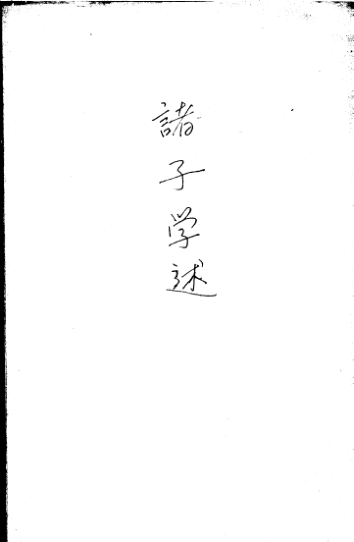 諸子学述